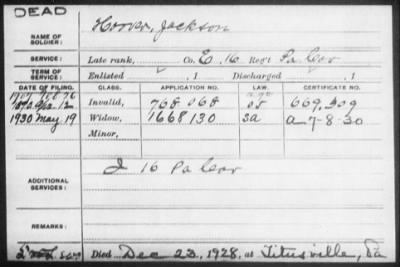 DEAD
NAME OF SOLDIER: Hoover, Jackson
SERVICE: Late rank, Co. E, 16 Reg't Pa Cav
TERM OF SERVICE: Enlisted , 1 Discharged , 1
DATE OF FILING. CLASS. APPLICATION NO. LAW. CERTIFICATE NO.
Apr 12 Invalid, 768 068 669,309
1930 May 19 Widow, 1668130 a-7-8-30
Minor,
ADDITIONAL SERVICES: I 16 Pa Cav
REMARKS:
Died Dec 23, 1928, at Titusville, Pa